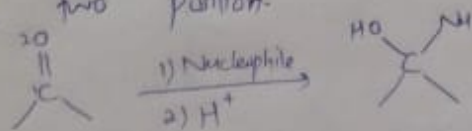 two portion.
20
||
C
1) Nucleophile
2) H+
HO NH
C